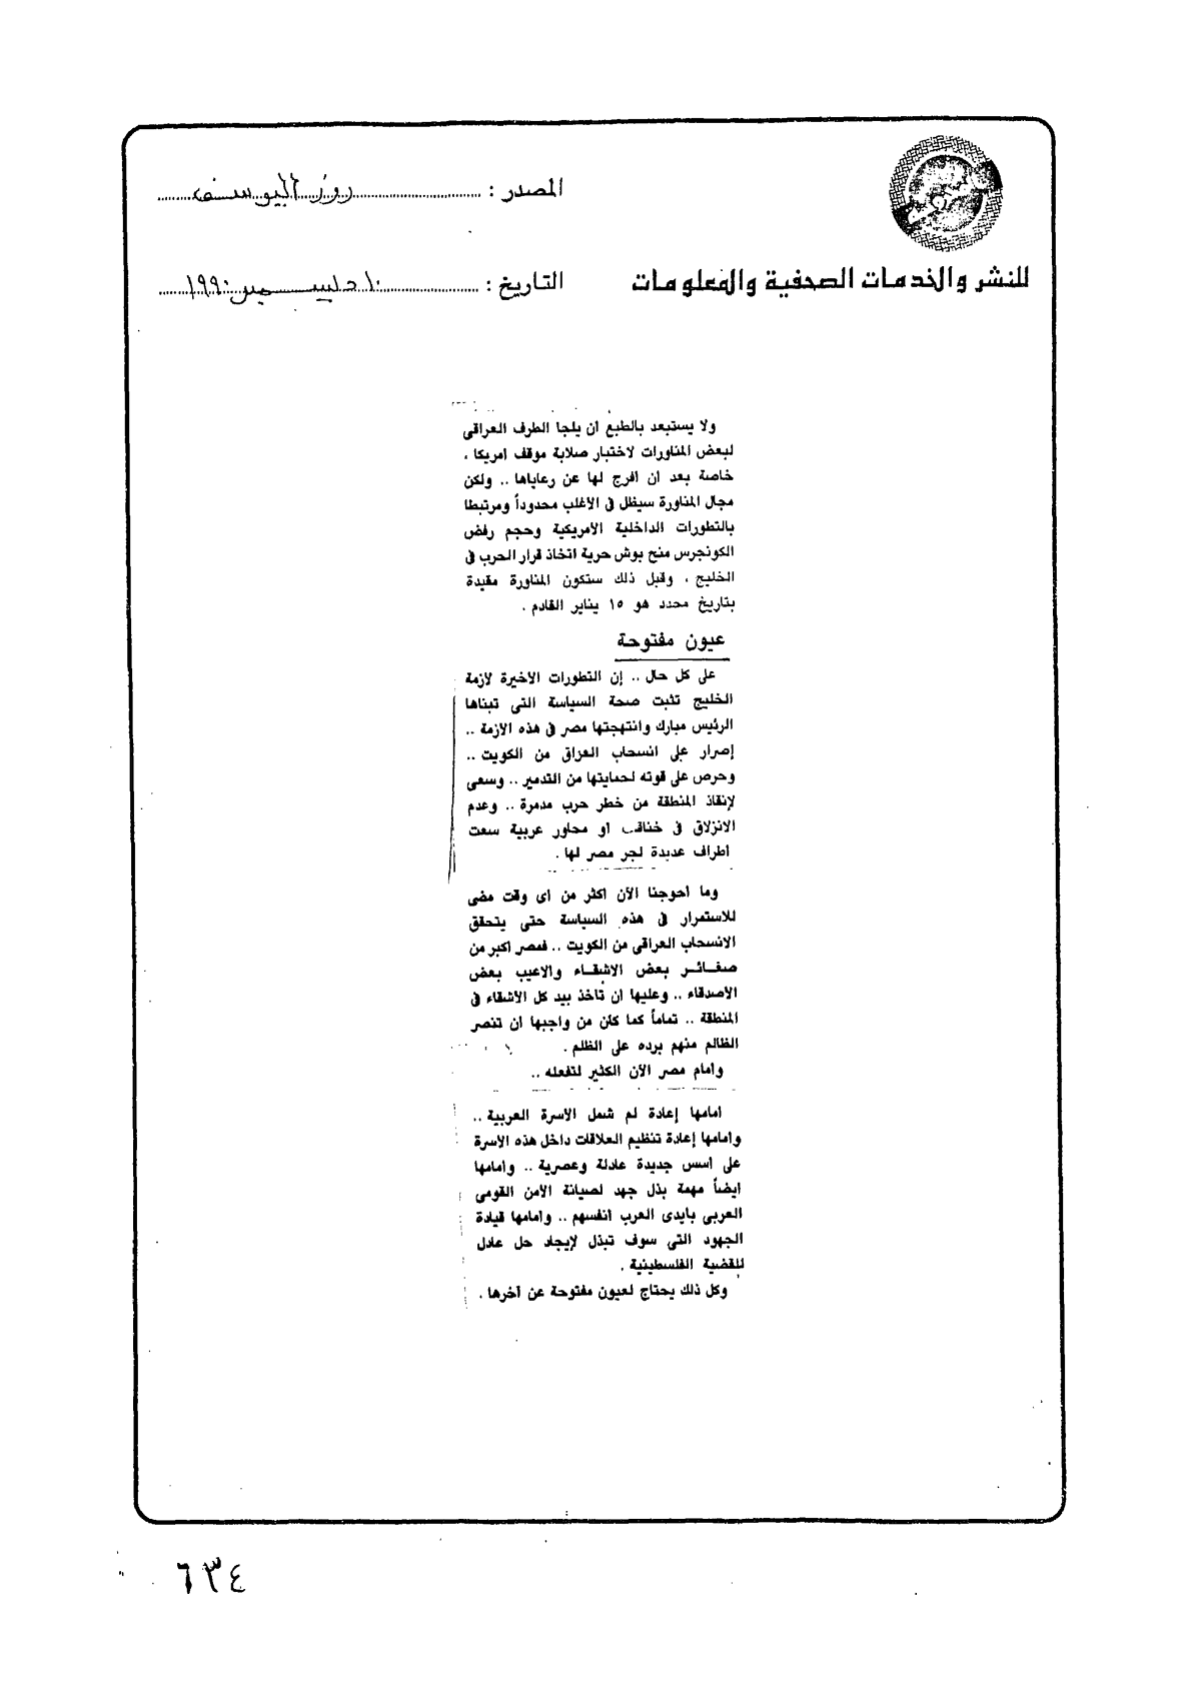 المصدر : روز اليوسف
للنشر والخدمات الصحفية والمعلومات
التاريخ : ١٠ ديسمبر ١٩٩٠
ولا يستبعد بالطبع ان يلجا الطرف العراقى
لبعض المناورات لاختبار صلابة موقف امريكا ،
خاصة بعد ان افرج لها عن رعاياها .. ولكن
مجال المناورة سيظل فى الأغلب محدوداً ومرتبطا
بالتطورات الداخلية الأمريكية وحجم رفض
الكونجرس منح بوش حرية اتخاذ قرار الحرب فى
الخليج ، وقبل ذلك ستكون المناورة مقيدة
بتاريخ محدد هو ١٥ يناير القادم .
عيون مفتوحة
على كل حال .. إن التطورات الأخيرة لأزمة
الخليج تثبت صحة السياسة التى تبناها
الرئيس مبارك وانتهجتها مصر فى هذه الأزمة ..
إصرار على انسحاب العراق من الكويت ..
وحرص على قوته لحمايتها من التدمير .. وسعى
لإنقاذ المنطقة من خطر حرب مدمرة .. وعدم
الانزلاق فى خناقات او محاور عربية سعت
اطراف عديدة لجر مصر لها .
وما احوجنا الآن اكثر من اى وقت مضى
للاستمرار فى هذه السياسة حتى يتحقق
الانسحاب العراقى من الكويت .. فمصر اكبر من
صغائر بعض الأشقاء والاعيب بعض
الأصدقاء .. وعليها ان تأخذ بيد كل الأشقاء فى
المنطقة .. تماماً كما كان من واجبها ان تنصر
الظالم منهم برده على الظلم .
وامام مصر الآن الكثير لتفعله ..
امامها إعادة لم شمل الأسرة العربية ..
وامامها إعادة تنظيم العلاقات داخل هذه الأسرة
على اسس جديدة عادلة وعصرية .. وامامها
ايضاً مهمة بذل جهد لصيانة الأمن القومى
العربى بايدى العرب انفسهم .. وامامها قيادة
الجهود التى سوف تبذل لإيجاد حل عادل
للقضية الفلسطينية .
وكل ذلك يحتاج لعيون مفتوحة عن آخرها .
٦٣٤